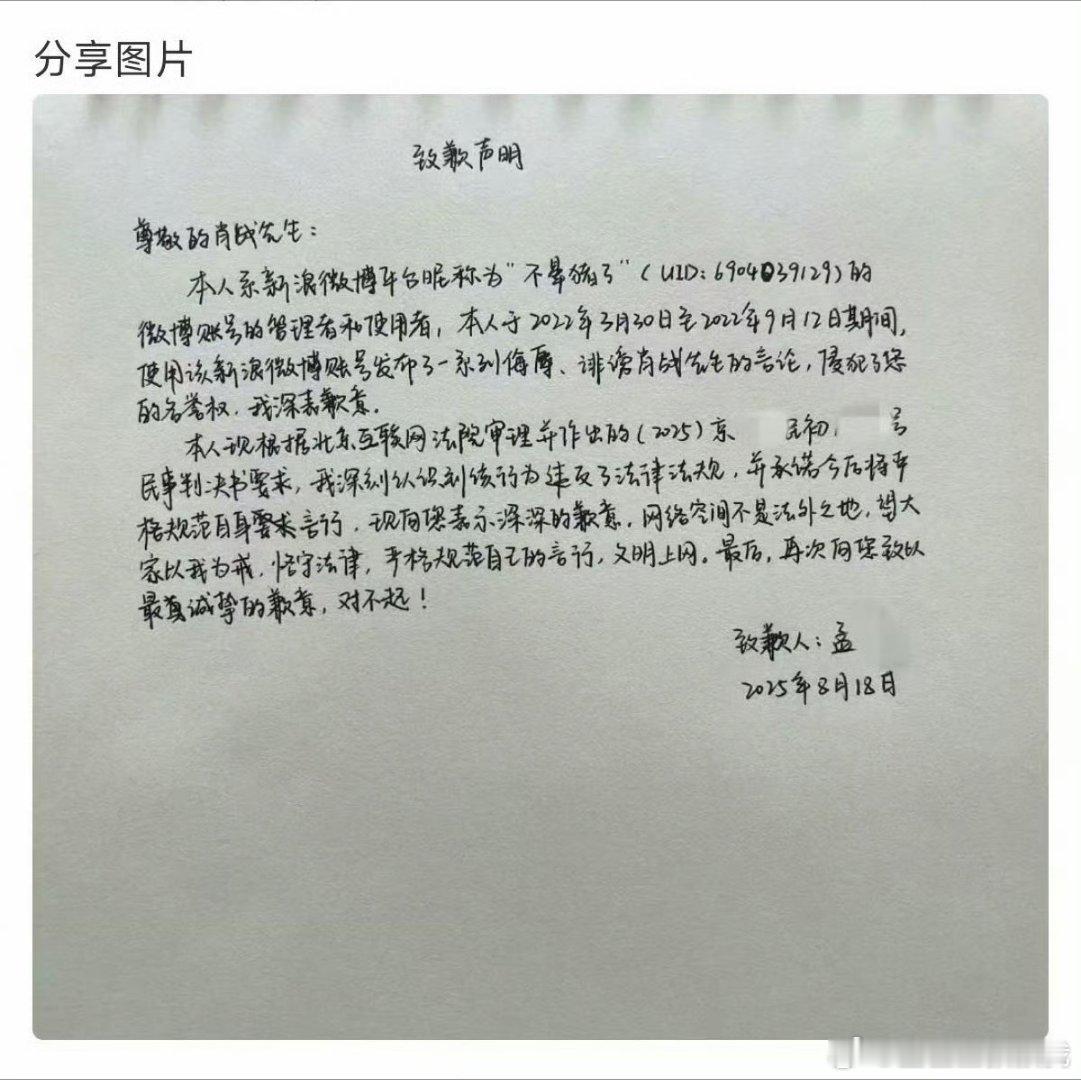 分享图片
致歉声明
尊敬的肖战先生：
本人系新浪微博平台昵称为“不晕猪了”（UID：6904039129）的
微博账号的管理者和使用者，本人于2022年3月30日至2022年9月12日期间，
使用该新浪微博账号发布了一系列侮辱、诽谤肖战先生的言论，侵犯了您
的名誉权，我深表歉意。
本人现根据北京互联网法院审理并作出的（2025）京 民初 号
民事判决书要求，我深刻认识到该行为违反了法律法规，并承诺今后将严
格规范自身要求言行，现向您表示深深的歉意，网络空间不是法外之地，望大
家以我为戒，恪守法律，严格规范自己的言行，文明上网。最后，再次向您致以
最真诚挚的歉意，对不起！
致歉人：孟
2025年8月18日